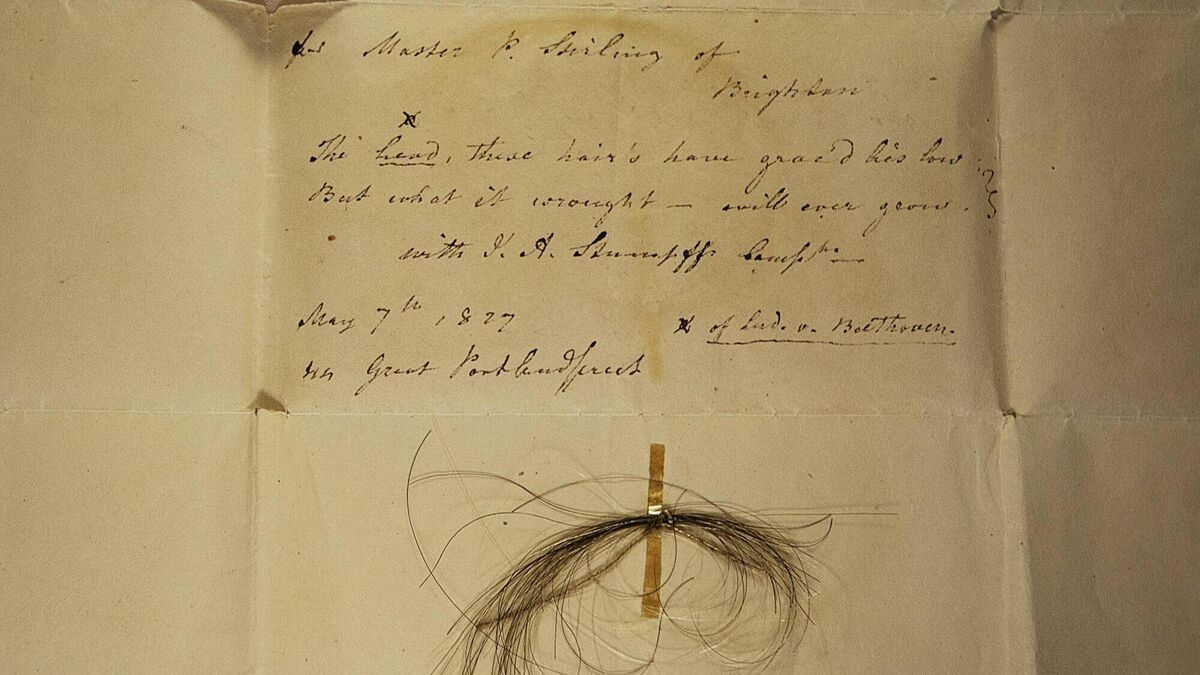 for Master P. Stirling of
Brighton
x
The head, these hair's have grac'd lies low
But what it wrought – will ever grow.
with J. A. Stumpff's Compts
May 7th, 1827
x of Lud. v. Beethoven.
Great Portlandstreet